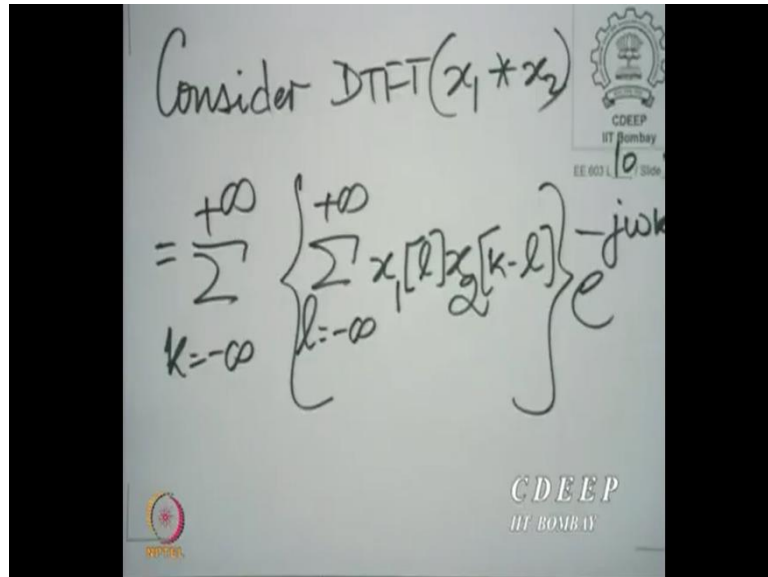 Consider DTFT(x₁ * x₂)
CDEEP
IIT Bombay
EE 603 L 10 / Slide
= +∞ Σ k=-∞ { +∞ Σ l=-∞ x₁[l] x₂[k-l] } e^-jωk
CDEEP
IIT BOMBAY
NPTEL